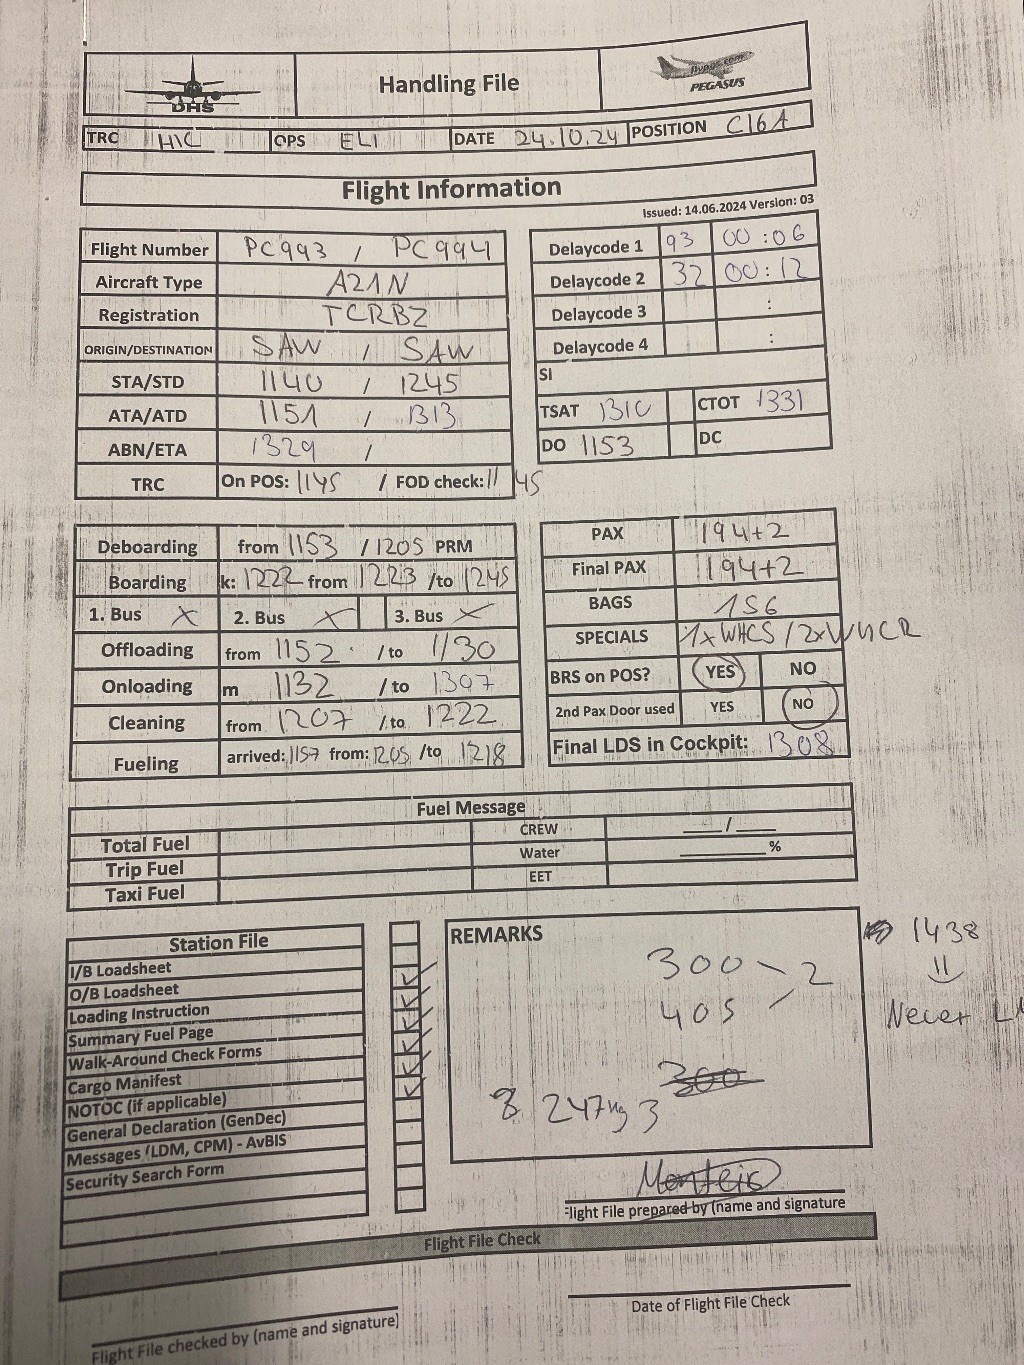 DHS
Handling File
flypgs.com
PEGASUS
TRC HIC OPS ELI DATE 24.10.24 POSITION C16A
Flight Information
Issued: 14.06.2024 Version: 03
Flight Number PC993 / PC994
Aircraft Type A21N
Registration TCRBZ
ORIGIN/DESTINATION SAW / SAW
STA/STD 1140 / 1245
ATA/ATD 1151 / 1313
ABN/ETA 1329 /
TRC On POS: 1145 / FOD check: 1145
Delaycode 1 93 00:06
Delaycode 2 32 00:12
Delaycode 3 :
Delaycode 4 :
SI
TSAT 1310 CTOT 1331
DO 1153 DC
Deboarding from 1153 / 1205 PRM
Boarding k: 1222 from 1223 /to 1245
1. Bus X 2. Bus X 3. Bus X
Offloading from 1152 / to 1130
Onloading m 1132 / to 1307
Cleaning from 1207 / to 1222
Fueling arrived: 1157 from: 1205 /to 1218
PAX 194+2
Final PAX 194+2
BAGS 156
SPECIALS 1xWHCS / 2xWHCR
BRS on POS? YES NO
2nd Pax Door used YES NO
Final LDS in Cockpit: 1308
Fuel Message
Total Fuel CREW ___/___
Trip Fuel Water ______%
Taxi Fuel EET
Station File
I/B Loadsheet
O/B Loadsheet
Loading Instruction
Summary Fuel Page
Walk-Around Check Forms
Cargo Manifest
NOTOC (if applicable)
General Declaration (GenDec)
Messages (LDM, CPM) - AvBIS
Security Search Form
REMARKS
300 - 2
405
300
247kg 3
1438
Never
Monteiro
Flight File prepared by (name and signature
Flight File Check
Flight File checked by (name and signature)
Date of Flight File Check